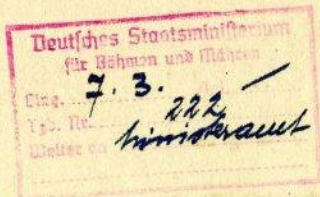 Deutsches Staatsministerium
für Böhmen und Mähren
Eing. 7. 3.
Tgb. Nr. 222
Weiter an Ministeramt